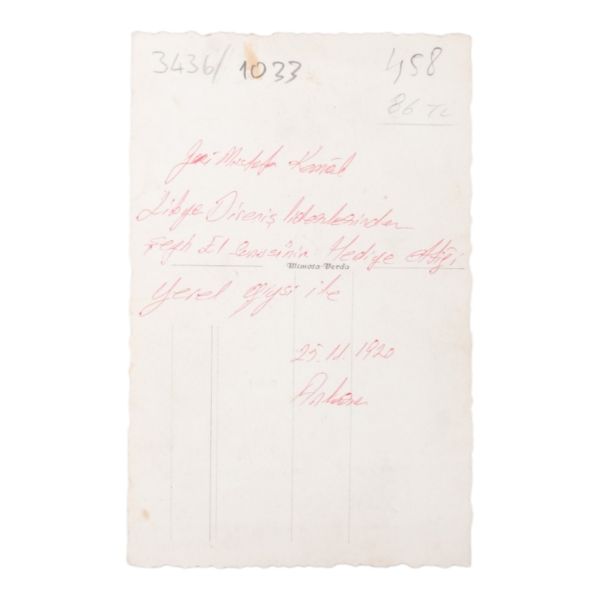 3436/1033
458
86 TL
Gazi Mustafa Kemâl
Libya Direniş liderlerinden
Şeyh El Senusi'nin Hediye ettiği
Mimosa-Verda
yerel giysi ile
25.11.1920
Ankara